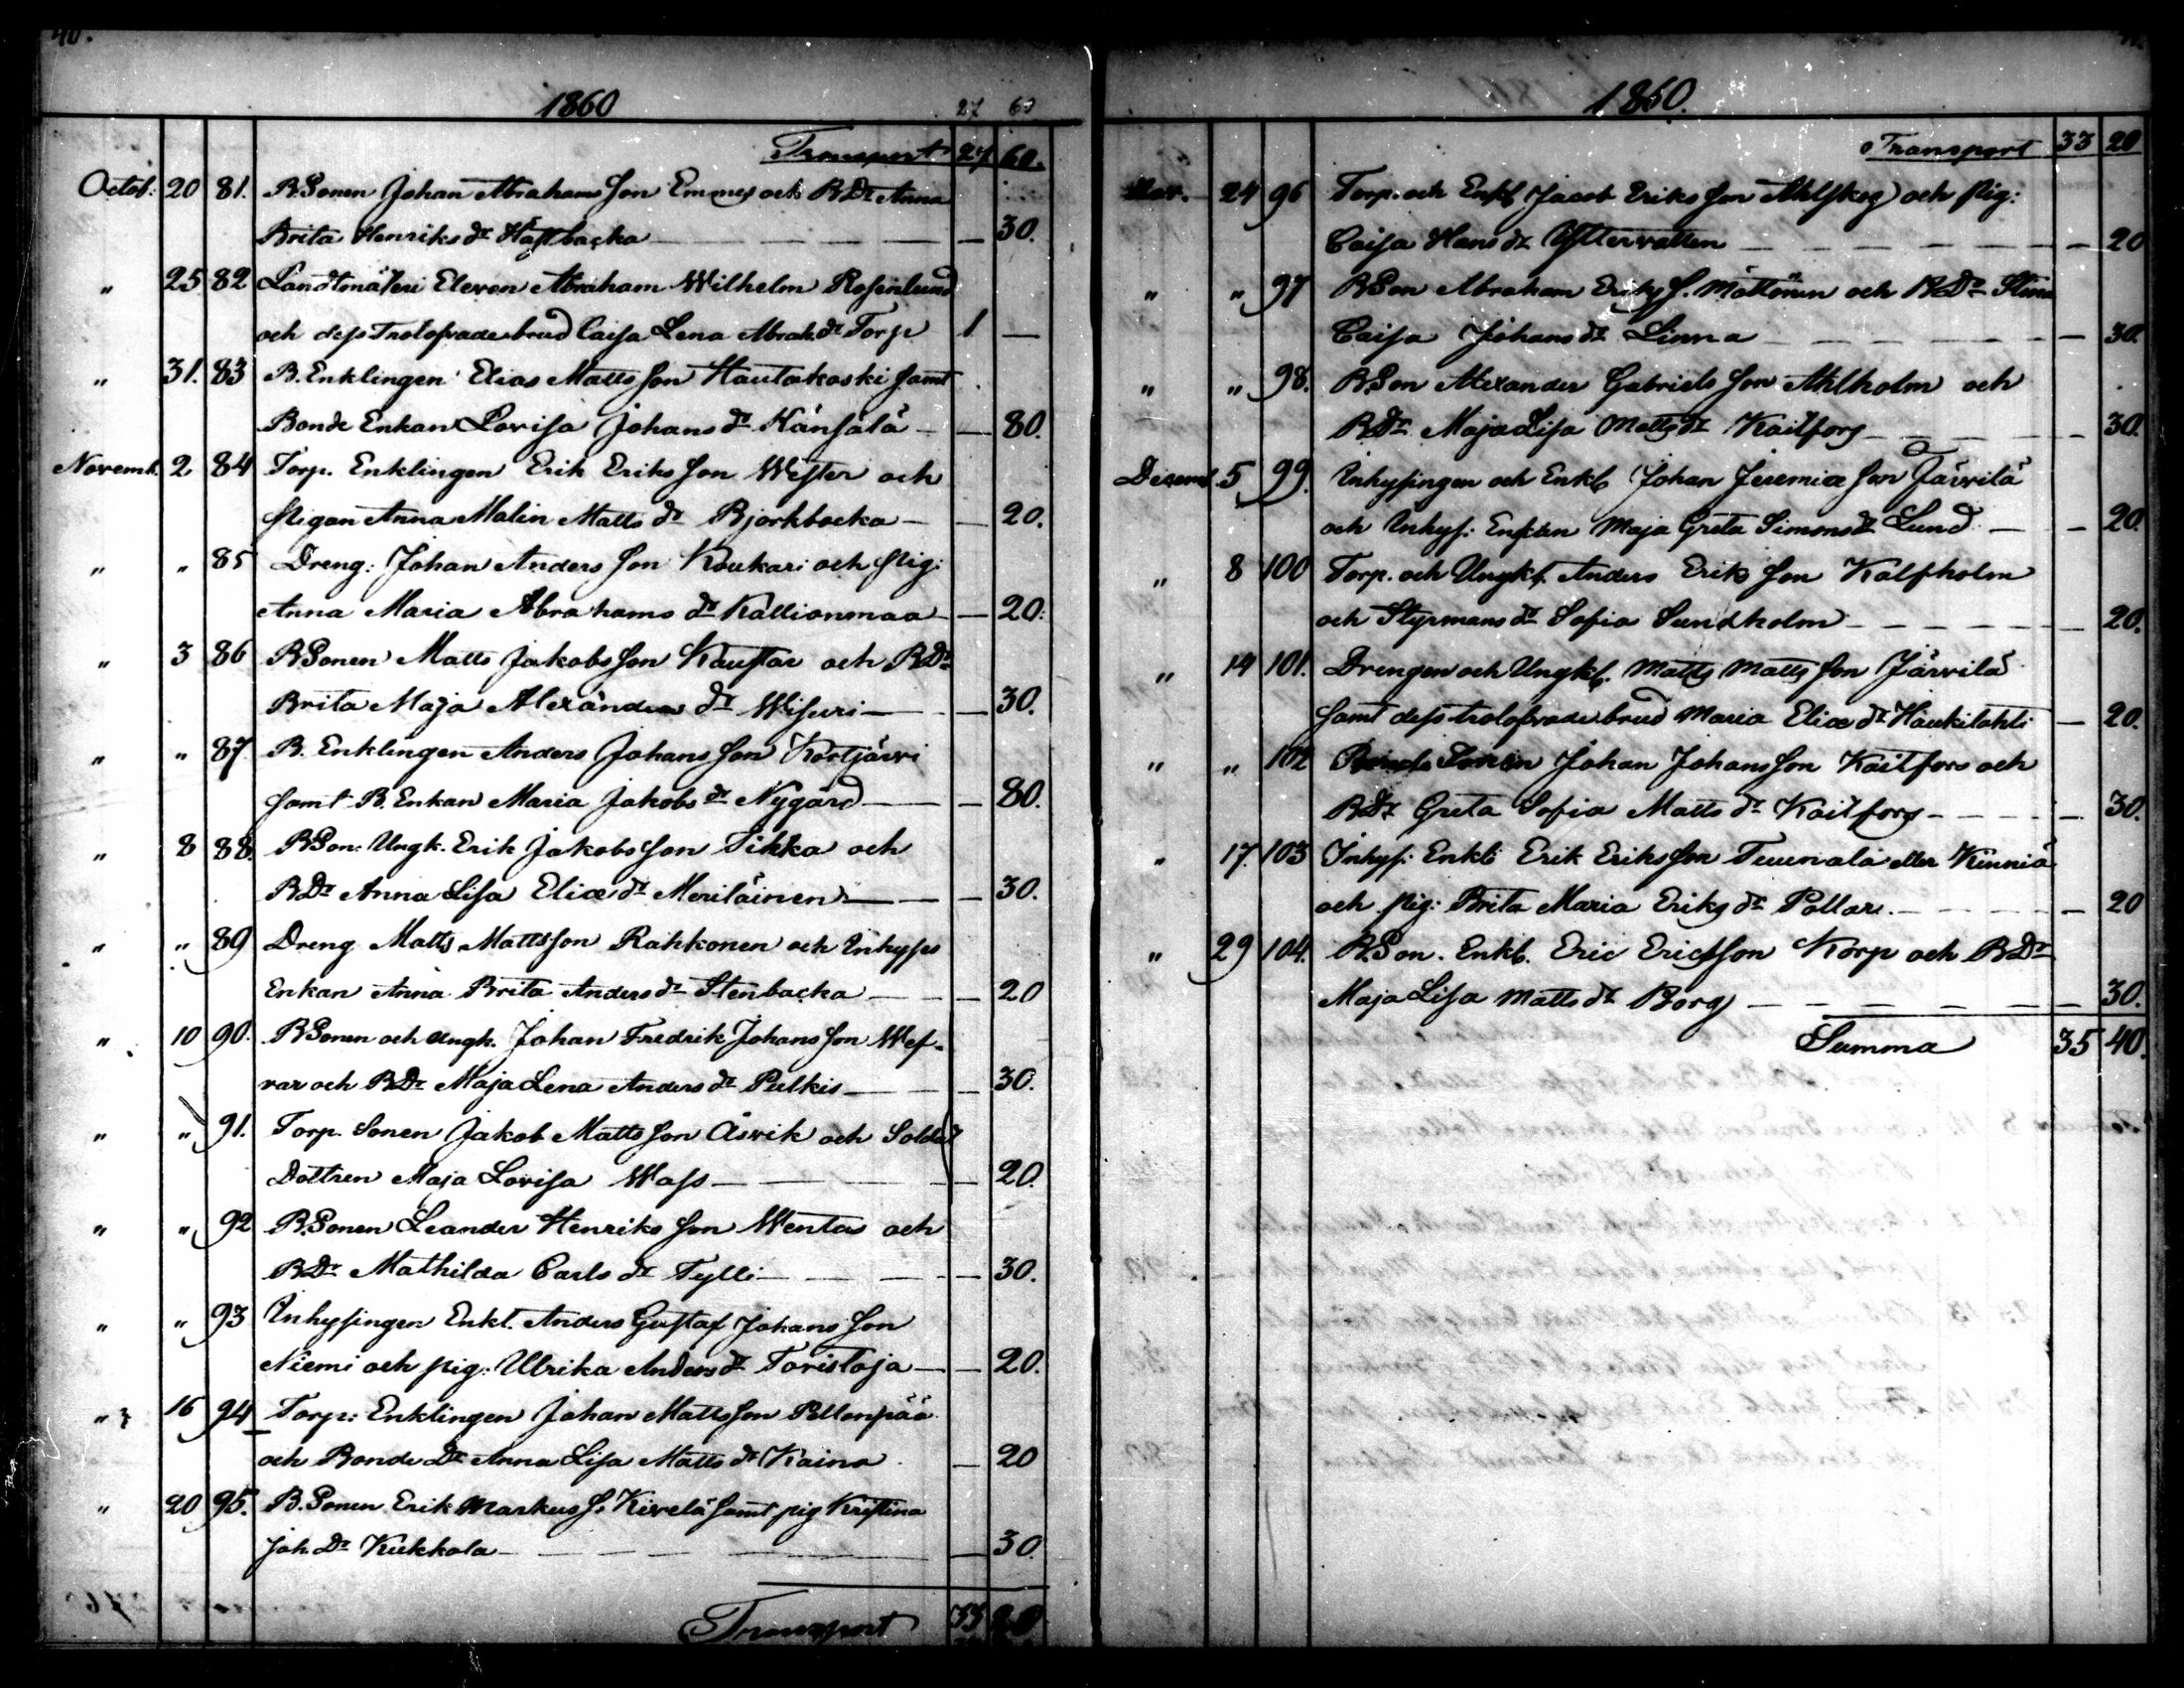 40.
1860 27 60
Transport 27 60.
Octob: 20 81. B Sonen Johan Abrahams Son Emmes och B Dr Anna
Brita Henriks dr Hästbacka — — 30.
" 25 82 Landtmäteri Eleven Abraham Wilhelm Rosenlund
och dess Trolofvade brud Caisa Lena Abrah. dr Torp 1 —
" 31. 83 B. Enklingen Elias Matts Son Hautakoski samt
Bonde Enkan Lovisa Johans dr Känsälä — — 80.
Novemb. 2 84 Torp. Enklingen Erik Eriks Son Wester och
pigan Anna Malin Matts dr Bjorkbacka — — 20.
" " 85 Dreng: Johan Anders Son Koukari och pig:
Anna Maria Abrahams dr Kallionmaa — — 20:
" 3 86 B Sonen Matts Jakobs Son Kaustar och B Dr
Brita Maja Alexanders dr Wisuri — — 30.
" " 87 B. Enklingen Anders Johans Son Kortjärvi
samt B. Enkan Maria Jakobs dr Nygård — — 80.
" 8 88. B Son: Ungk. Erik Jakobs Son Sikka och
B Dr Anna Lisa Eliæ dr Meriläinen — — 30.
" " 89 Dreng Matts Mattsson Rahkonen och Inhyses
Enkan Anna Brita Anders dr Stenbacka — — 20
" 10 90. B Sonen och Ungk. Johan Fredrik Johans Son Wef-
var och B Dr Maja Lena Anders dr Pulkis — — 30.
" " 91. Torp. Sonen Jakob Matts Son Åsvik och Soldat
Dottren Maja Lovisa Wass — — 20.
" " 92 B. Sonen Leander Henriks Son Wentus och
B Dr Mathilda Carls dr Tylli — — 30.
" " 93 Inhysingen Enkl. Anders Gustaf Johans Son
Niemi och pig: Ulrika Anders dr Toristoja — — 20.
" 16 94 Torp: Enklingen Johan Matts Son Pellonpää
och Bonde Dr Anna Lisa Matts dr Kaino — 20
" 20 95. B. Sonen Erik Markus S. Kivelä samt pig Kristina
Joh. Dr Kukkola — — 30.
Transport 33 20
1860.
Transport 33 20
Nov. 24 96 Torp. och Enkl. Jacob Eriks Son Ahlskog och pig:
Caisa Hans dr Yttervallen — — 20
" " 97 B Son Abraham Eriks S. Möttönen och B Dr Stina
Caisa Johans dr Linna — — 30.
" " 98. B. Son Alexander Gabriels Son Ahlholm och
B Dr Maja Lisa Matts dr Kaitfors — 30.
Decemb. 5 99. Inhysingen och Enkl. Johan Jeremiæ Son Järvilä
och Inhys: Enkan Maja Greta Simons dr Lund — — 20.
" 8 100 Torp. och Ungkl. Anders Eriks Son Kalfholm
och Styrmans dr Sofia Sundholm — — 20.
" 14 101. Drengen och Ungkl. Matts Matts Son Järvilä
samt dess trolofvade brud Maria Eliæ dr Haukilahti — 20.
" " 102 Bonde Sonen Johan Johans Son Kaitfors och
B Dr Greta Sofia Matts dr Kaitfors — — 30.
" 17. 103 Inhys: Enkl: Erik Eriks Son Tuunala eller Kinniä
och pig: Brita Maria Eriks dr Pollari. — — 20
" 29 104. B. Son. Enkl. Eric Ericsson Korp och B Dr
Maja Lisa Matts dr Borg — — 30.
Summa 35 40.